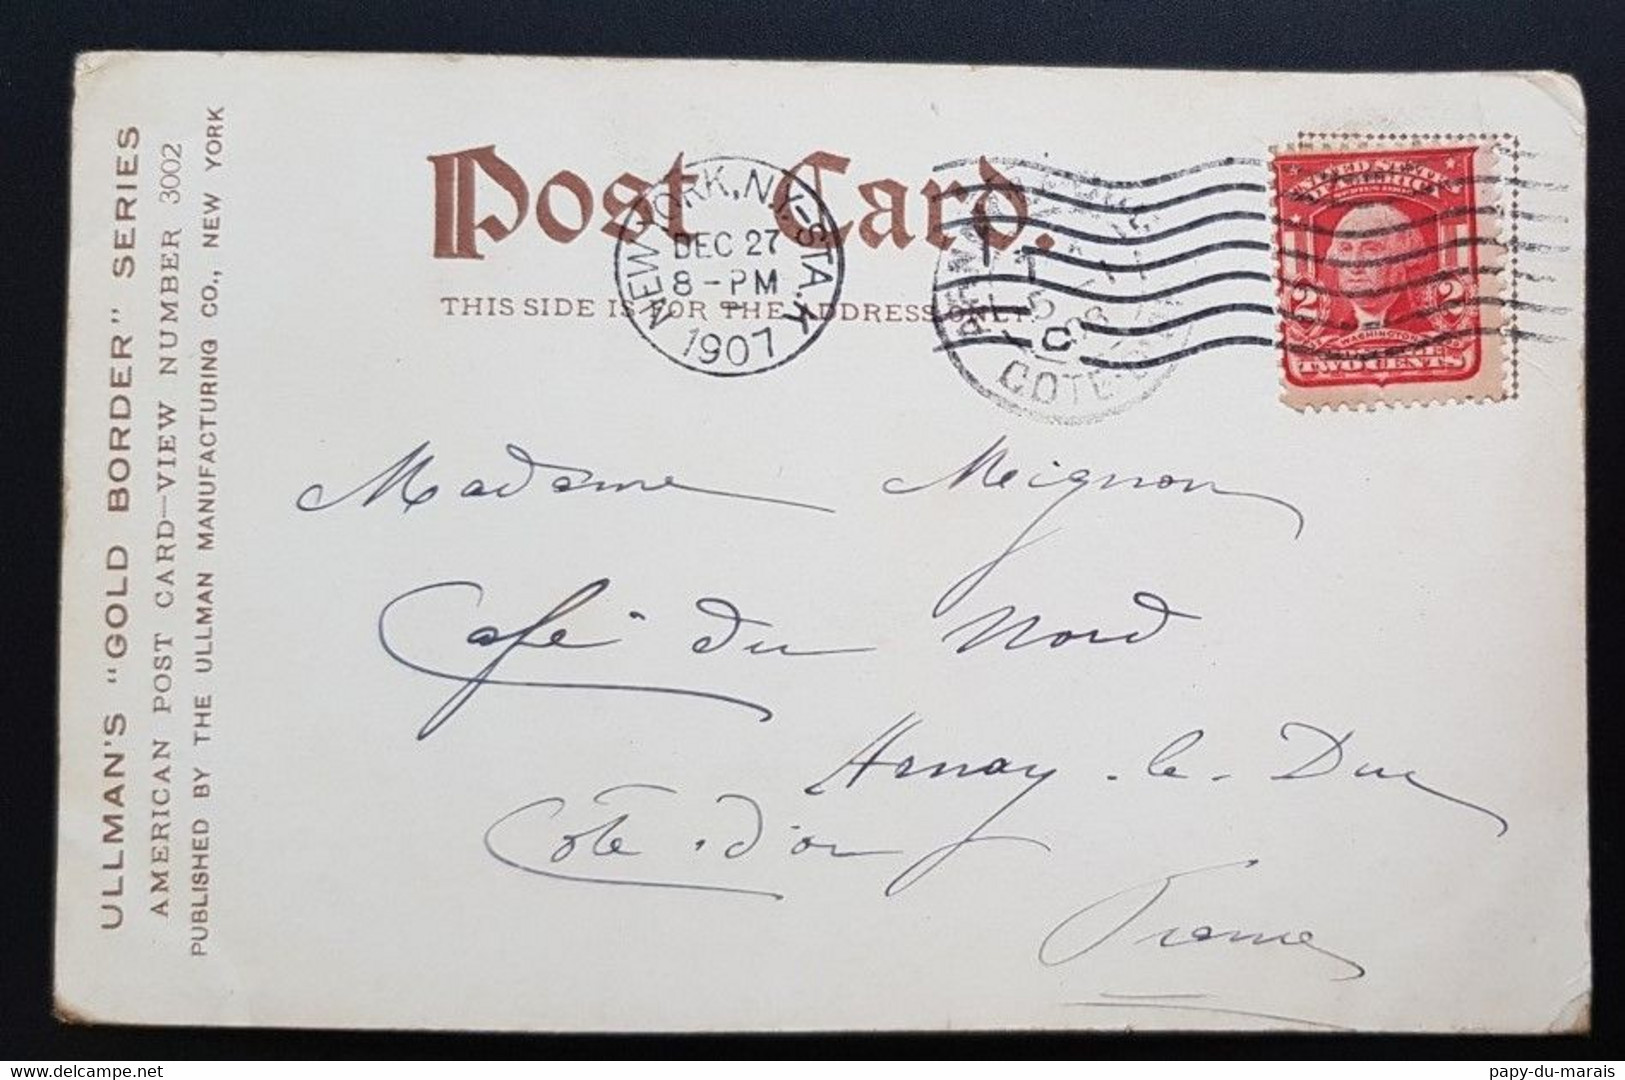 ULLMAN'S "GOLD BORDER" SERIES
AMERICAN POST CARD—VIEW NUMBER 3002
PUBLISHED BY THE ULLMAN MANUFACTURING CO., NEW YORK
Post Card.
THIS SIDE IS FOR THE ADDRESS ONLY
NEW YORK, N.Y.-STA. K
DEC 27
8-PM
1907
COTE
UNITED STATES
OF AMERICA
2 2
WASHINGTON
TWO CENTS
Madame Meignon
Café du Nord
Arnay-le-Duc
Côte d'or
France
papy-du-marais